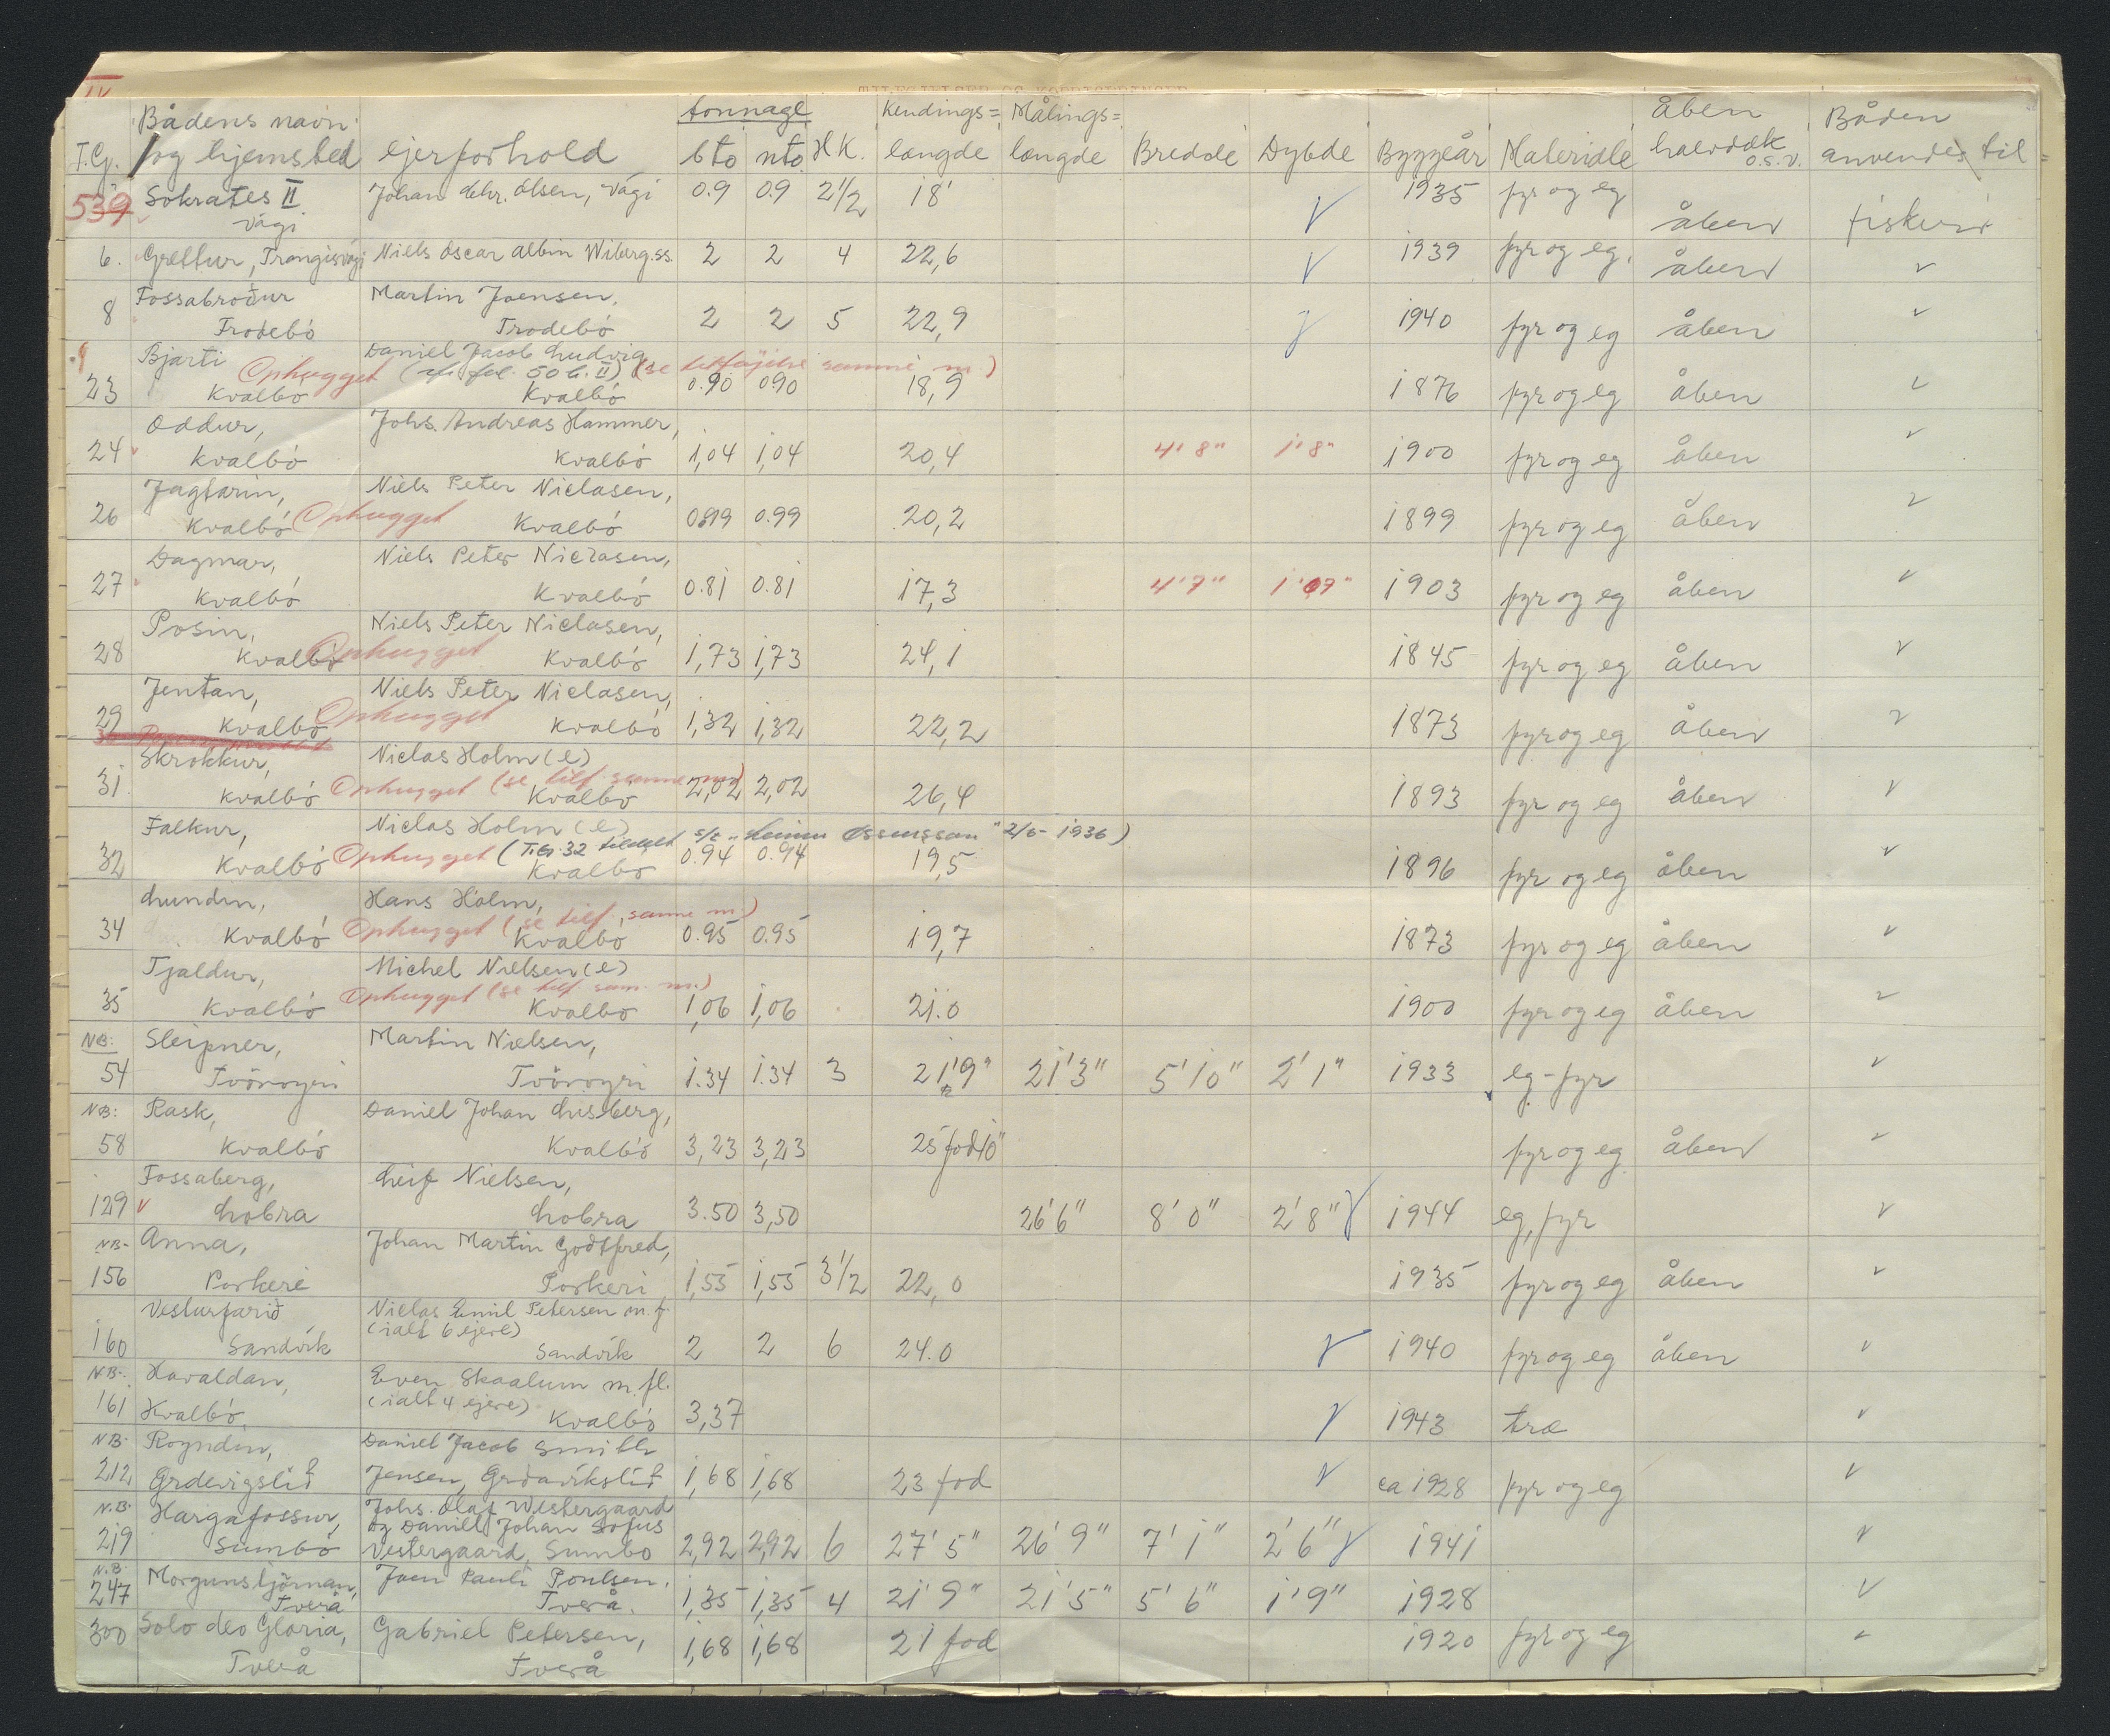 IV
Bådens navn tonnage Kendings= Målings= åben Båden
T.G. og hjemsted ejerforhold bto nto HK. længde længde Bredde Dybde Byggeår Materiale halvdæk o.s.v. anvendes til
539 Sokrates II Johan Chr. Olsen, Vági 0.9 0.9 2½ 18' 1935 fyr og eg åben fiskeri
Vági
6. Grettur, Trangisvági Niels Oscar Albin Wiberg.ss. 2 2 4 22,6 1939 fyr og eg, åben
Fossabrodur Martin Joensen,
8 Frodebö Frodebö 2 2 5 22,9 1940 fyr og eg åben
Bjarti Daniel Jacob Ludvig,
Ophugget (se tilføjelse samme nr.)
23 Kvalbö Kvalbö 0.90 0.90 18,9 1876 fyr og eg åben
Oddur, Johs. Andreas Hammer,
24 Kvalbö Kvalbö 1,04 1,04 20,4 4' 8" 1' 8" 1900 fyr og eg åben
Jagtarin, Niels Peter Niclasen,
26 Kvalbö Ophugget Kvalbö 0.99 0.99 20,2 1899 fyr og eg åben
Dagmar, Niels Peter Niclasen,
27 Kvalbö Kvalbö 0.81 0.81 17,3 4' 7" 1903 fyr og eg åben
Posin, Niels Peter Niclasen,
28 Kvalbö Ophugget Kvalbö 1,73 1,73 24,1 1845 fyr og eg åben
Jentan, Niels Peter Niclasen,
29 Kvalbö Ophugget Kvalbö 1,32 1,32 22,2 1873 fyr og eg åben
Skrokkur, Niclas Holm (e)
Ophugget (se tilf. samme nr)
31. Kvalbö Kvalbö 2,02 2,02 26,4 1893 fyr og eg åben
Falkur, Niclas Holm (e)
Ophugget (T.G. 32 tildelt s/c 2/6-1936)
32 Kvalbö Kvalbö 0.94 0.94 19,5 1896 fyr og eg åben
Lundin, Hans Holm,
Ophugget (se tilf. samme nr.)
34 Kvalbö Kvalbö 0.95 0.95 19,7 1873 fyr og eg åben
Tjaldur, Michel Nielsen (e)
Ophugget (se tilf. sam. nr.)
35 Kvalbö Kvalbö 1,06 1,06 21.0 1900 fyr og eg åben
NB: Sleipner, Martin Nielsen,
54 Tvöroyri Tvöroyri 1.34 1.34 3 21'9" 21'3" 5'10" 2'1" 1933 eg-fyr
NB: Rask, Daniel Johan Lisberg,
58 Kvalbö Kvalbö 3,23 3,23 25 fod 10" fyr og eg åben
Fossaberg, Leif Nielsen,
129 Lobra Lobra 3.50 3,50 26'6" 8'0" 2'8" 1944 eg, fyr
NB- Anna, Johan Martin Godtfred,
156 Porkeri Porkeri 1,55 1,55 3½ 22,0 1935 fyr og eg åben
Vesturfarið Niclas Emil Petersen m.fl.
(ialt 6 ejere)
160 Sandvik Sandvik 2 2 6 24.0 1940 fyr og eg åben
NB-: Havaldan, Even Skaalum m. fl.
(ialt 4 ejere)
161 Kvalbö, Kvalbö 3,37 1943 træ
NB- Royndin, Daniel Jacob Smith
212 Grdevigslid Jensen, Grdavikslid 1,68 1,68 23 fod ca 1928 fyr og eg
N.B- Hargafossur, Johs. Olaf Westergaard
og Daniel Johan Sofus
219 Sumbö Vestergaard, Sumbo 2,92 2,92 6 27' 5" 26' 9" 7' 1" 2' 6" 1941
N.B. Morgunstjörnan, Joen Pauli Poulsen,
247 Tverå Tverå. 1,35 1,35 4 21' 9" 21' 5" 5' 6" 1' 9" 1928
300 Solo deo Gloria, Gabriel Petersen, 1,68 1,68 21 fod 1920 fyr og eg
Tverå Tverå